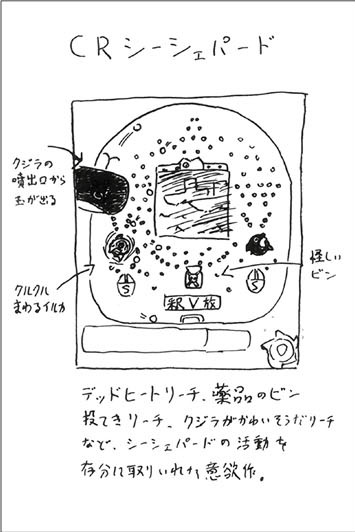 CRシーシェパード
クジラの
噴出口から
玉が出る
クルクル
まわるイルカ
怪しい
ビン
S
S
釈V放
デッドヒートリーチ、薬品のビン
投てきリーチ、クジラがかわいそうだリーチ
など、シーシェパードの活動を
存分に取りいれた意欲作。